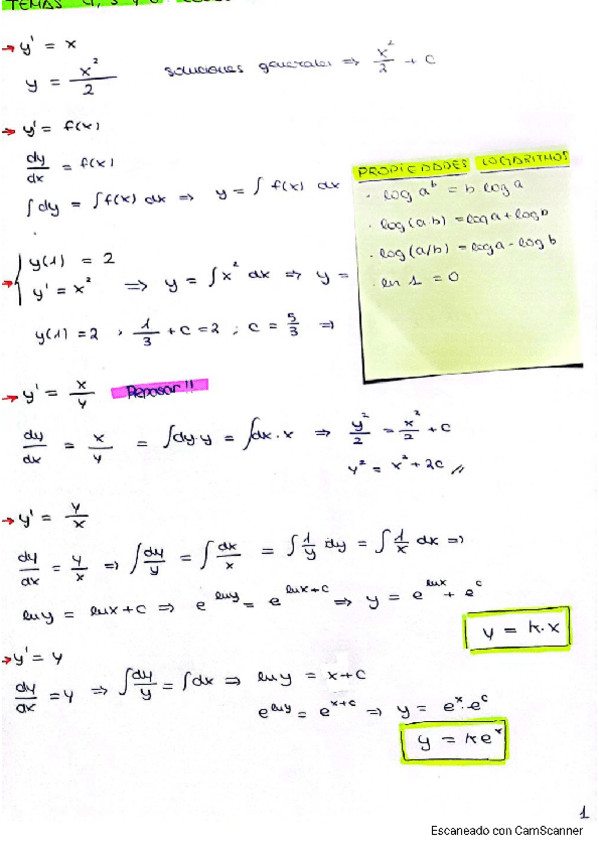 TEMAS 4, 5 y 6
→ y' = x
y = x²/2 soluciones generales ⇒ x²/2 + C
→ y' = f(x)
dy/dx = f(x)
∫dy = ∫f(x) dx ⇒ y = ∫ f(x) dx
PROPIEDADES LOGARITMOS
· log a^b = b log a
· log(a·b) = log a + log b
· log(a/b) = log a - log b
· ln 1 = 0
→ { y(1) = 2
y' = x² ⇒ y = ∫x² dx ⇒ y =
y(1) = 2 , 1/3 + C = 2 ; C = 5/3 ⇒
→ y' = x/y Repasar!!
dy/dx = x/y = ∫dy·y = ∫dx·x ⇒ y²/2 = x²/2 + C
y² = x² + 2C //
→ y' = y/x
dy/dx = y/x ⇒ ∫dy/y = ∫dx/x = ∫1/y dy = ∫1/x dx ⇒
ln y = ln x + C ⇒ e^(ln y) = e^(ln x + C) ⇒ y = e^(ln x) + e^C
y = k·x
→ y' = y
dy/dx = y ⇒ ∫dy/y = ∫dx ⇒ ln y = x + C
e^(ln y) = e^(x+C) ⇒ y = e^x·e^C
y = ke^x
1
Escaneado con CamScanner